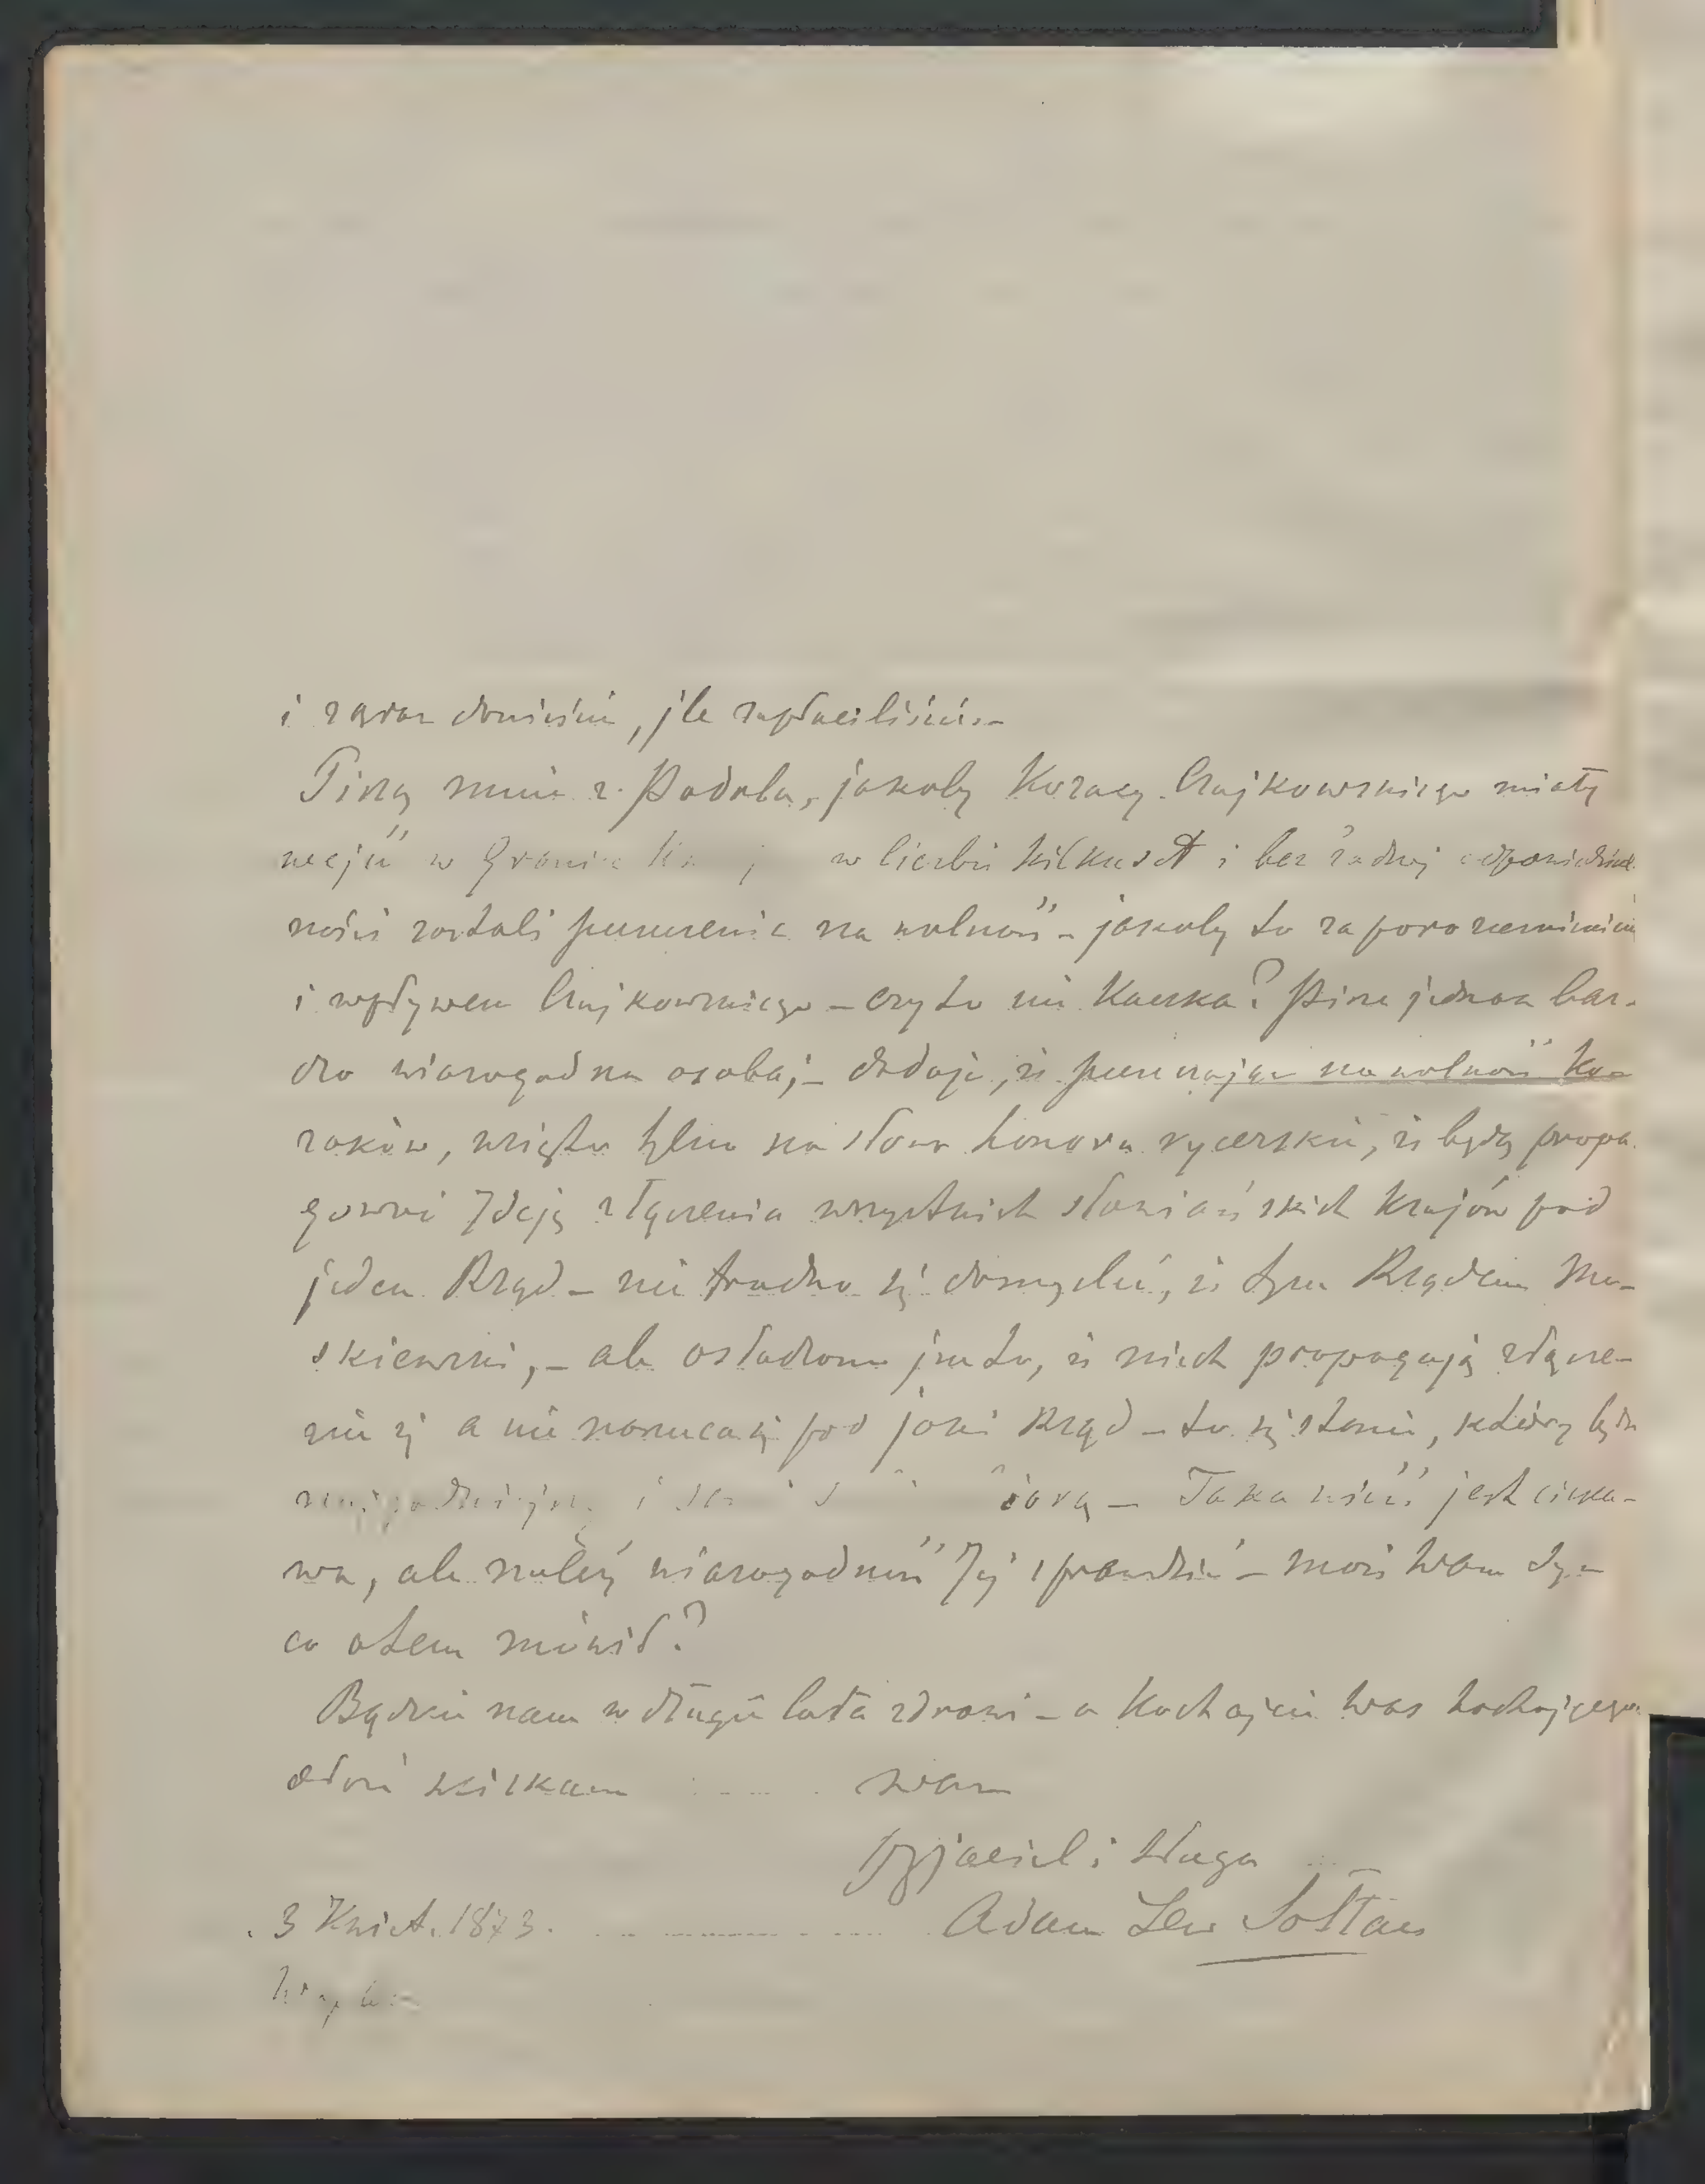 i zaraz donieście, jle zapłaciliście.–
Piszą mnie z Podola, jakoby Kozacy Czajkowskiego mieły
w w liczbie kilkuset i bez żadnej odpowiedzial-
ności zostali puszczenie na wolność – jakoby to za porozumieniem
i wpływem Czajkowskiego – czy to nie Kaczka? Pisze jednak bar-
dzo wiarogodna osoba; – dodaje, iż puszczając na wolność Ko-
zaków, wzięto tylko na słowo honoru rycerskie, iż będą propa-
gowai Jdeję złączenia wszystkich słowiańskich krajów pod
jeden Rząd – nie trudno się domyśleć, iż tym Rządem Mo-
skiewski, – ale osłodzone jest to, iż niech propagują złącze-
nie się a nie narzucają pod jaki Rząd – to się stanie, którzy będą
i – Taka wieść jest cieka-
wa, ale należy wiarogodność Jej sprawdzić – może Wam Dy-
co otem mówił?
Bądźcie nam w długie lata zdrowi – a Kochajcie Was kochającego
dłoń ściskam wam
przyjaciel i sługa
Adam Lew Sołtan
3 Kwiet. 1873.